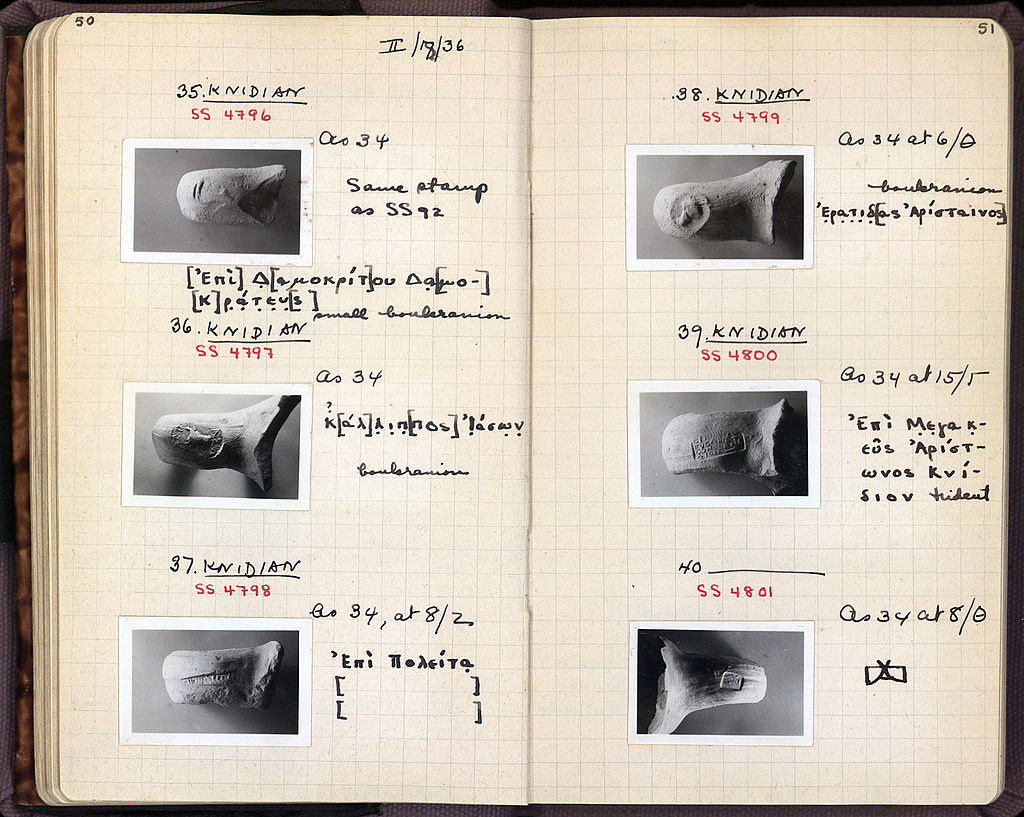 50
II / / 36
35. KNIDIAN
SS 4796
As 34
Same stamp
as SS 92
[Ἐπὶ] Δ̣[αμοκρίτ]ου Δα[μο-]
[Κ]ρ̣ά̣τ̣ε̣υ[ς]
small boukranion
36. KNIDIAN
SS 4797
As 34
Κ[άλ]λ̣ιπ̣[πος] Ἰάσων̣
boukranion
37. KNIDIAN
SS 4798
As 34, at 8/2
Ἐπὶ Πολείτα̣
[ ]
[ ]
51
38. KNIDIAN
SS 4799
As 34 at 6/Θ
boukranion
Ἐρ̣α̣τ̣ι̣δ̣[ας Ἀρίσταινος]
39. KNIDIAN
SS 4800
As 34 at 15/5
Ἐπὶ Μ̣ε̣γα κ̣-
εῦς Ἀρίστ-
ωνος Κνί-
διον trident
40
SS 4801
As 34 at 8/Θ